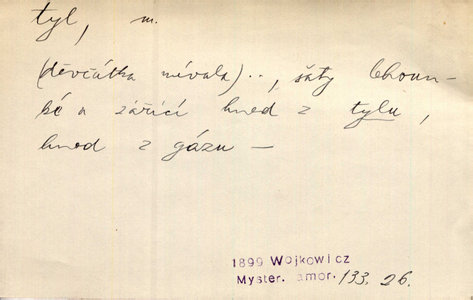 tyl, m.
(děvčátka mívala) .., šaty
a zářící hned z tylu,
hned z gázu —
1899 Wojkowicz
Myster. amor. 133, 26.